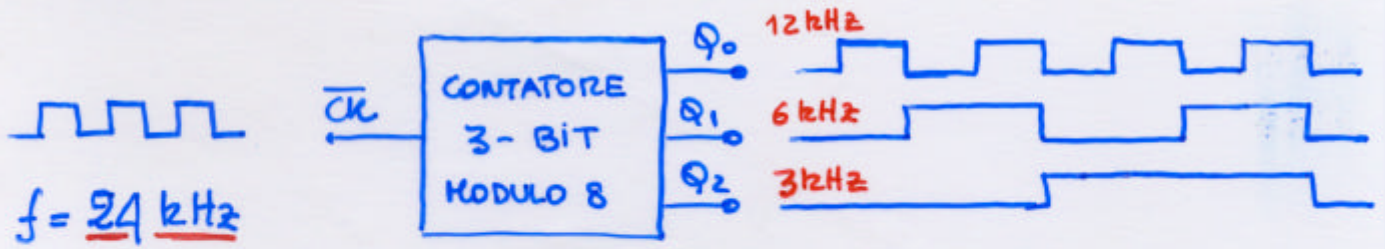 f = 24 kHz
C̅K̅
CONTATORE
3-BIT
MODULO 8
Q0 12 kHz
Q1 6 kHz
Q2 3 kHz